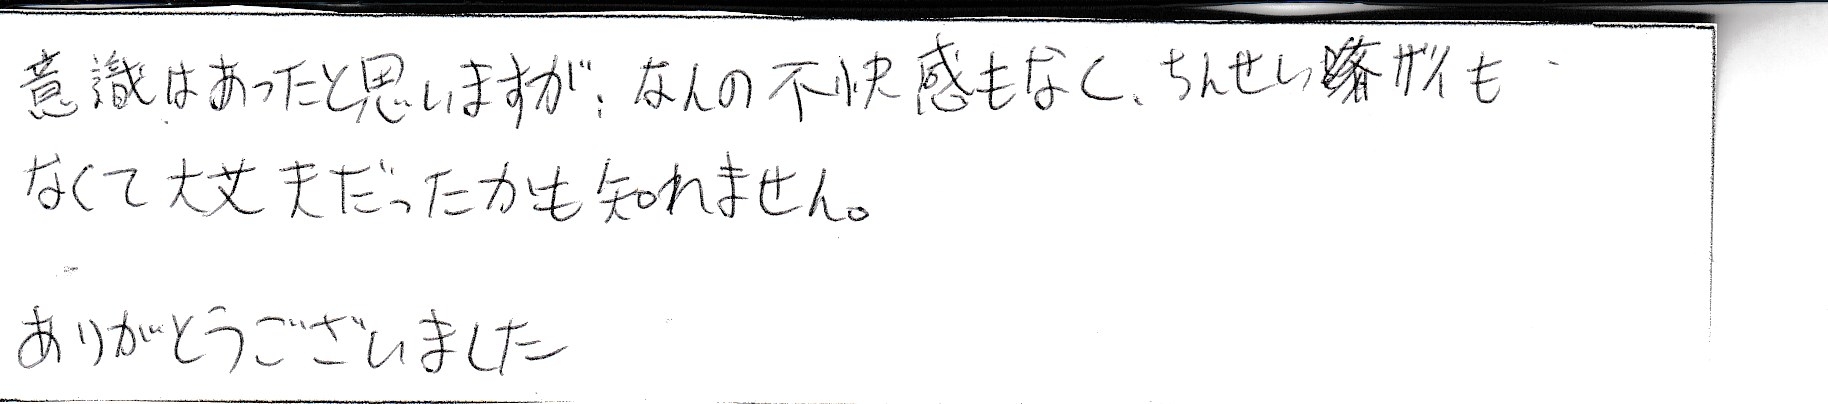 意識はあったと思いますが、なんの不快感もなく、ちんせい ザイも
なくて大丈夫だったかも知れません。
ありがとうございました